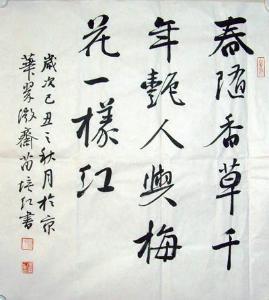 春随香草千
年艷人與梅
花一樣红
歲次己丑之秋月於京
華翠微齋苗培红書